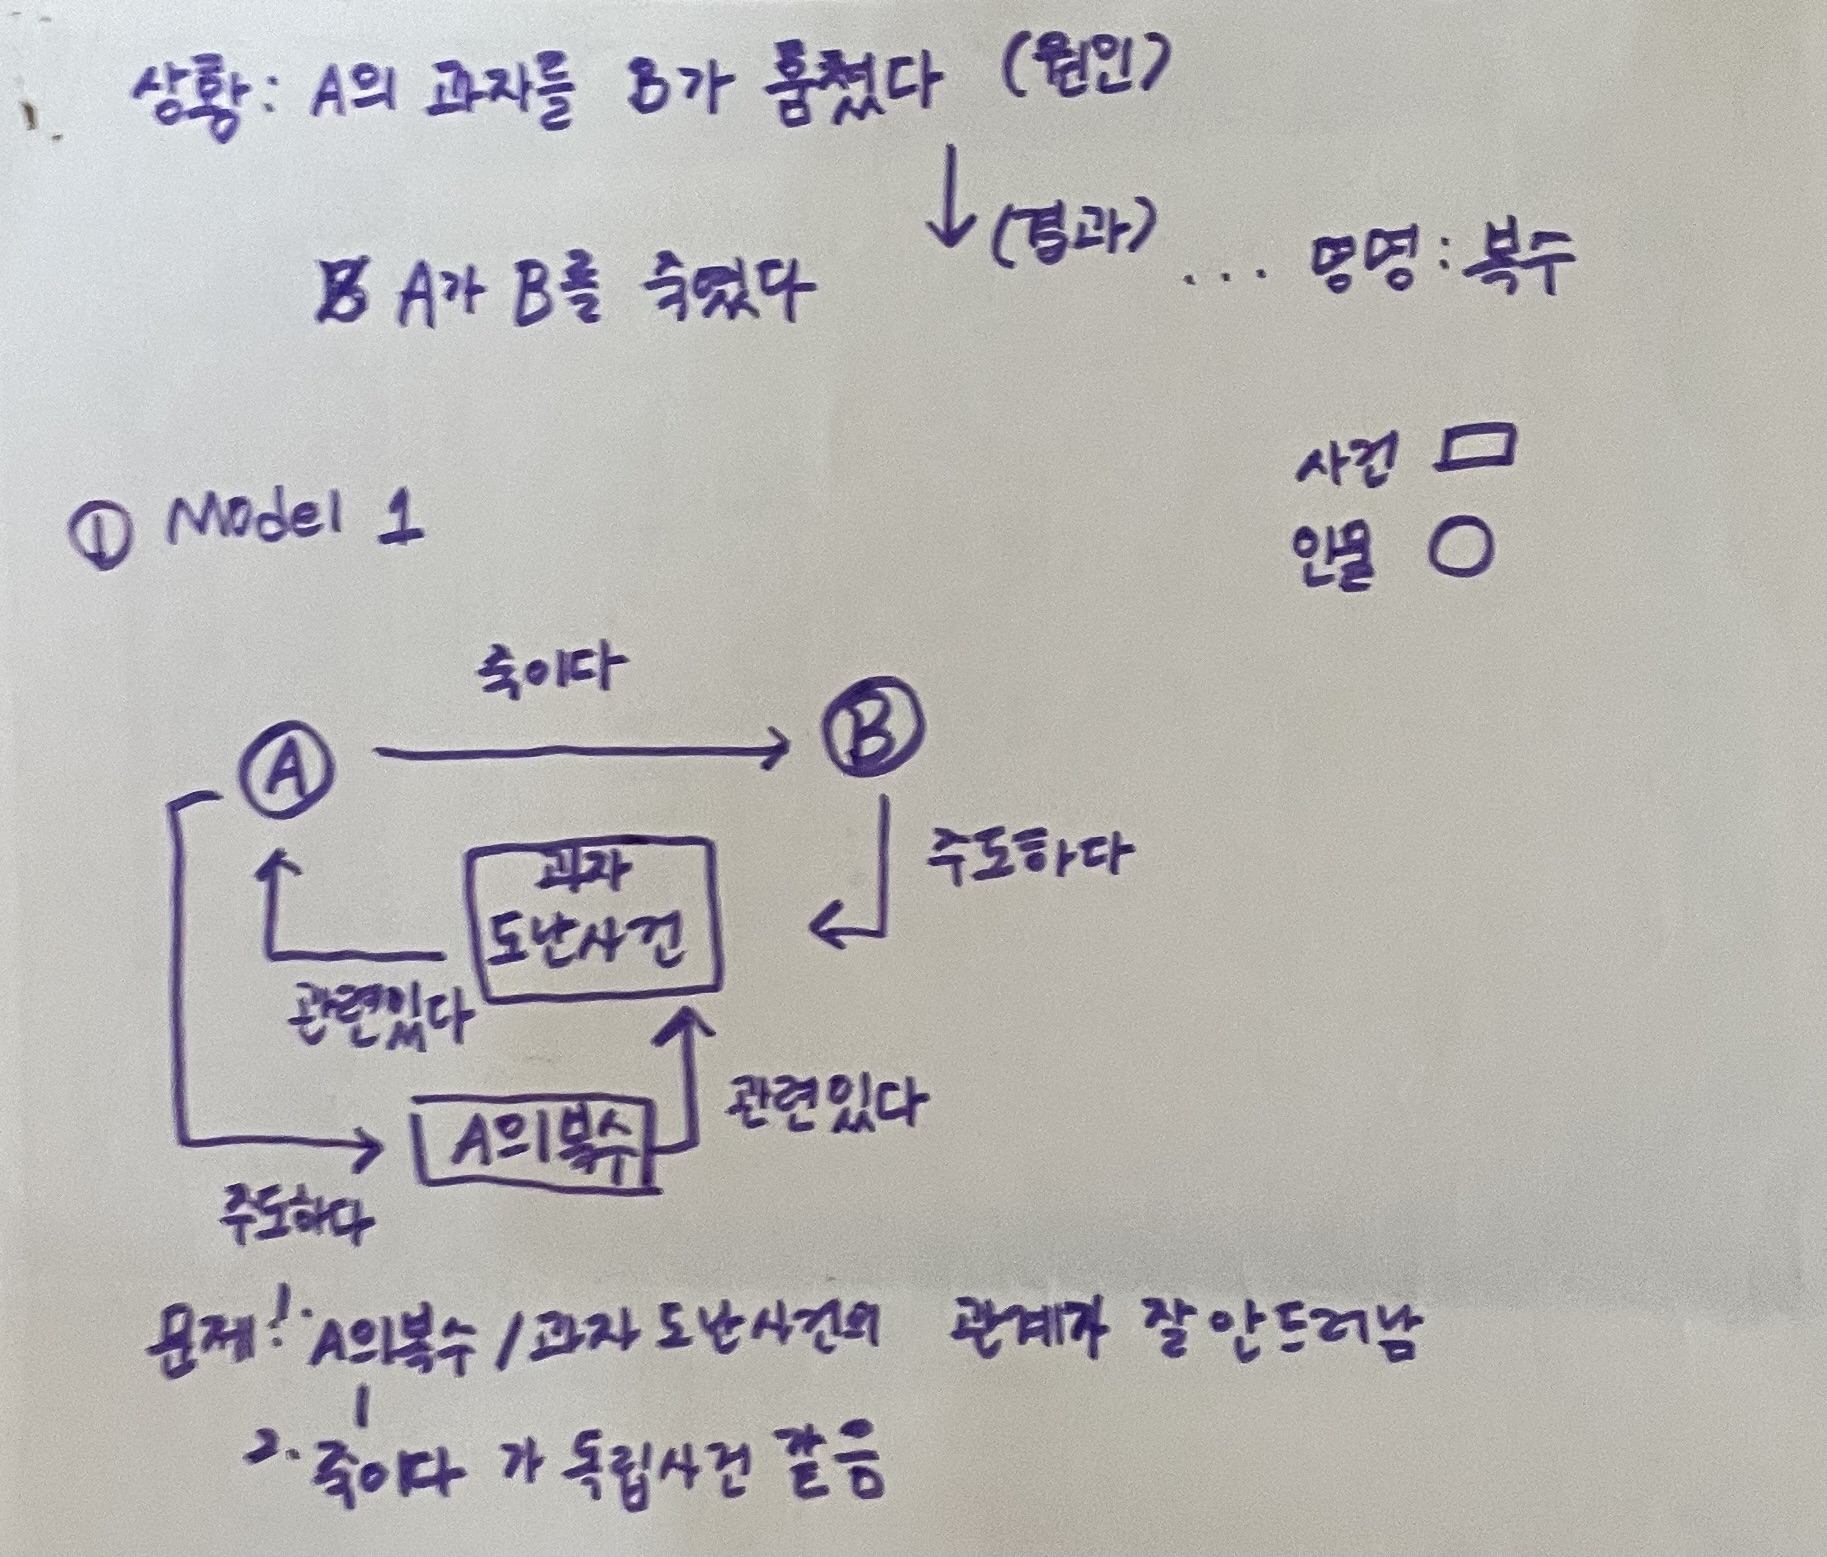 상황: A의 과자를 B가 훔쳤다 (원인)
(결과)
A가 B를 죽였다 ... 명명: 복수
사건
인물
① Model 1
죽이다
A
B
주도하다
과자
도난사건
관련있다
관련있다
A의 복수
주도하다
문제: 1. A의 복수 / 과자 도난사건의 관계가 잘 안드러남
2. 죽이다 가 독립사건 같음